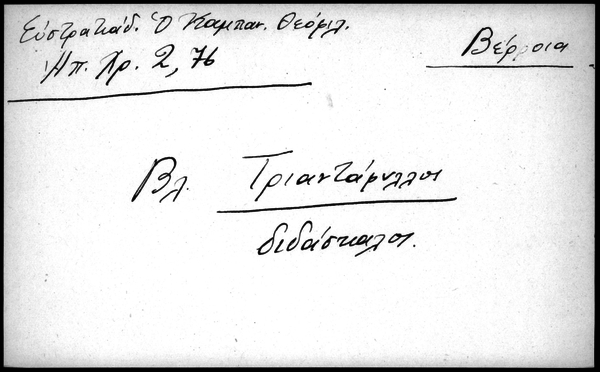 Εὐστρατιάδ. Ὁ Καμπαν. Θεόφιλ.
Ἠπ. Χρ. 2, 76
Βέρροια
Βλ. Τριαντάφυλλοι
διδάσκαλοι.